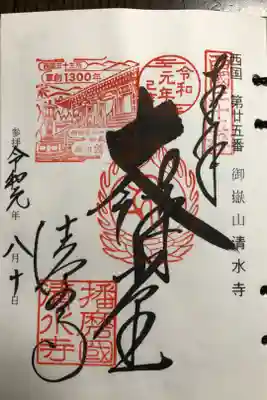 西国 第廿五番 御嶽山 清水寺
奉拝
大講堂
清水寺
参拝 令和元年 八月十日
西国三十三所
草創1300年
令和
元年
播磨國
清水寺